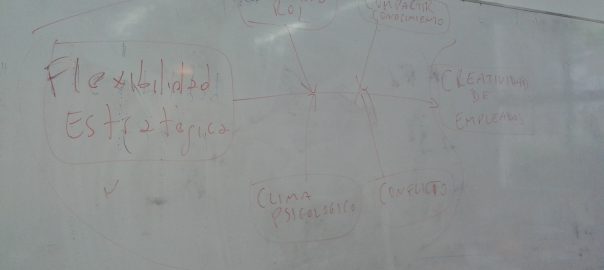 ROL
COMPARTIR
CONOCIMIENTO
Flexibilidad
Estratégica
CREATIVIDAD
DE
EMPLEADOS
CLIMA
PSICOLÓGICO
CONFLICTO